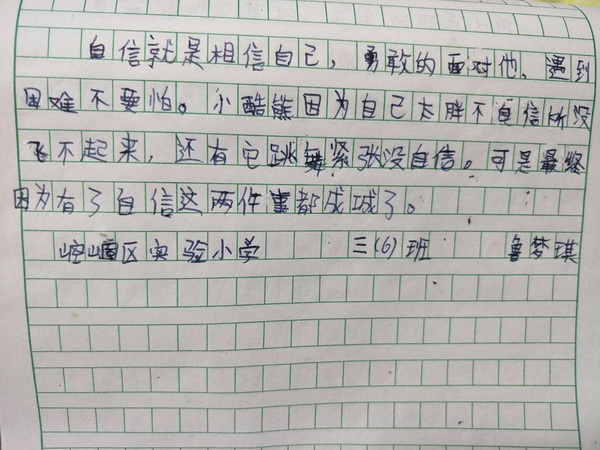 自信就是相信自己，勇敢的面对他，遇到
困难不要怕。小酷熊因为自己太胖不自信所没
飞不起来，还有它跳舞紧张没自信。可是最终
因为有了自信这两件事都成城了。
崆峒区实验小学 三(6)班 鲁梦琪